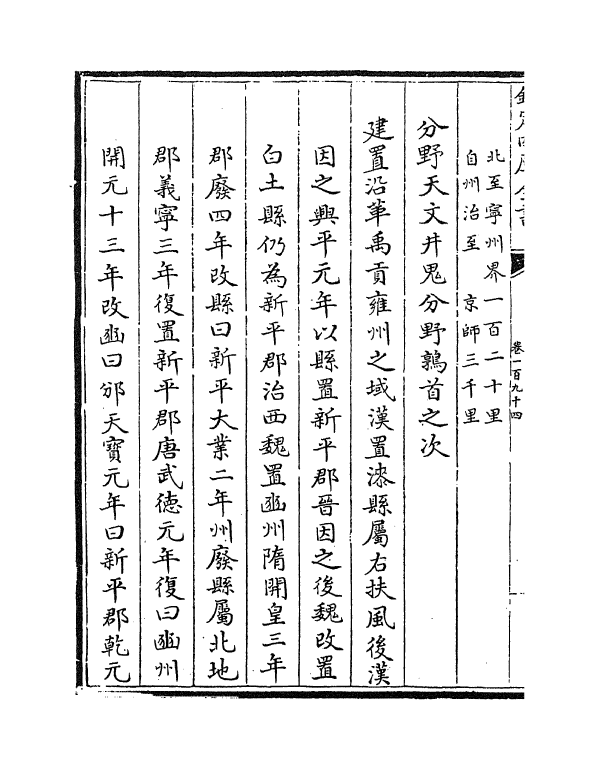 欽定四庫全書
卷一百九十四
北至寧州界一百二十里
自州治至 京師三千里
分野天文井鬼分野鶉首之次
建置沿革禹貢雍州之域漢置漆縣屬右扶風後漢
因之興平元年以縣置新平郡晉因之後魏改置
白土縣仍為新平郡治西魏置豳州隋開皇三年
郡廢四年改縣曰新平大業二年州廢縣屬北地
郡義寧三年復置新平郡唐武徳元年復曰豳州
開元十三年改豳曰邠天寳元年曰新平郡乾元